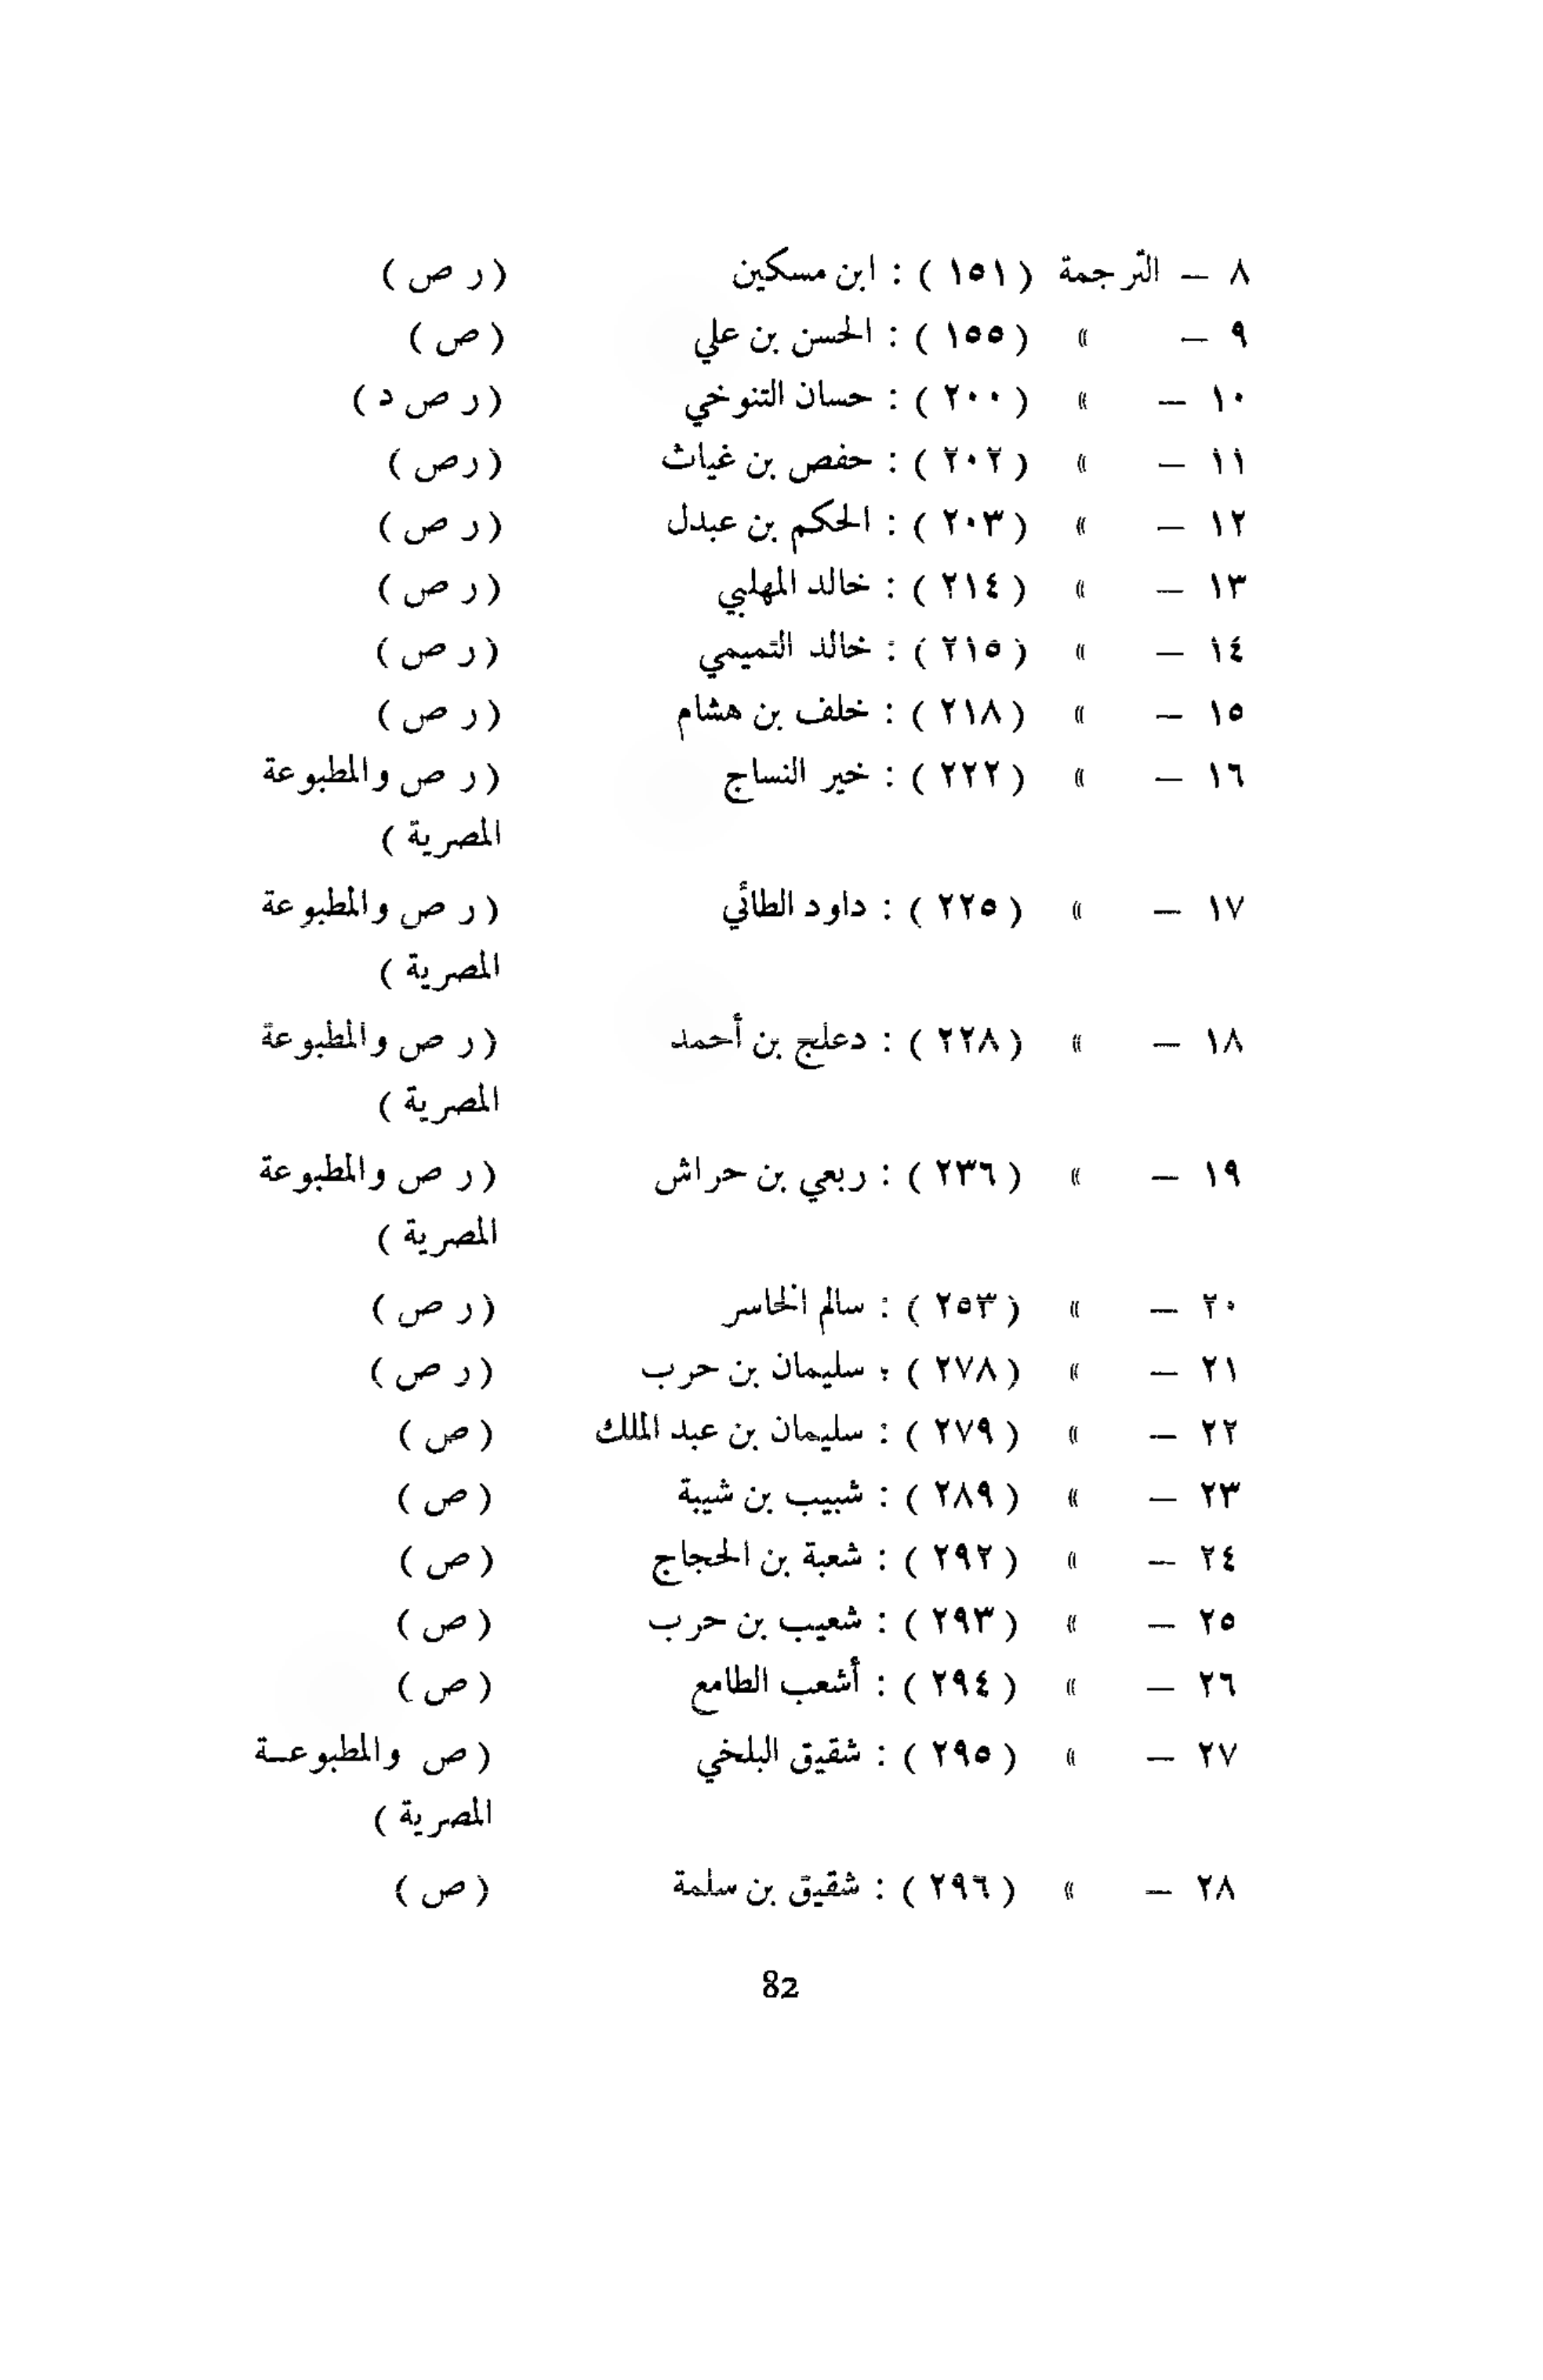 ٨ — الترجمة ( ١٥١ ) : ابن مسكين ( ر ص )
٩ — » ( ١٥٥ ) : الحسن بن علي ( ص )
١٠ — » ( ٢٠٠ ) : حسان التنوخي ( ر ص د )
١١ — » ( ٢٠٢ ) : حفص بن غياث ( رص )
١٢ — » ( ٢٠٣ ) : الحكم بن عبدل ( ر ص )
١٣ — » ( ٢١٤ ) : خالد المهلبي ( ر ص )
١٤ — » ( ٢١٥ ) : خالد التميمي ( ر ص )
١٥ — » ( ٢١٨ ) : خلف بن هشام ( ر ص )
١٦ — » ( ٢٢٢ ) : خير النساج ( ر ص والمطبوعة
المصرية )
١٧ — » ( ٢٢٥ ) : داود الطائي ( ر ص والمطبوعة
المصرية )
١٨ — » ( ٢٢٨ ) : دعلج بن أحمد ( ر ص والمطبوعة
المصرية )
١٩ — » ( ٢٣٦ ) : ربعي بن حراش ( ر ص والمطبوعة
المصرية )
٢٠ — » ( ٢٥٣ ) : سالم الخاسر ( ر ص )
٢١ — » ( ٢٧٨ ) : سليمان بن حرب ( ر ص )
٢٢ — » ( ٢٧٩ ) : سليمان بن عبد الملك ( ص )
٢٣ — » ( ٢٨٩ ) : شبيب بن شيبة ( ص )
٢٤ — » ( ٢٩٢ ) : شعبة بن الحجاج ( ص )
٢٥ — » ( ٢٩٣ ) : شعيب بن حرب ( ص )
٢٦ — » ( ٢٩٤ ) : أشعب الطامع ( ص )
٢٧ — » ( ٢٩٥ ) : شقيق البلخي ( ص والمطبوعـة
المصرية )
٢٨ — » ( ٢٩٦ ) : شقيق بن سلمة ( ص )
82